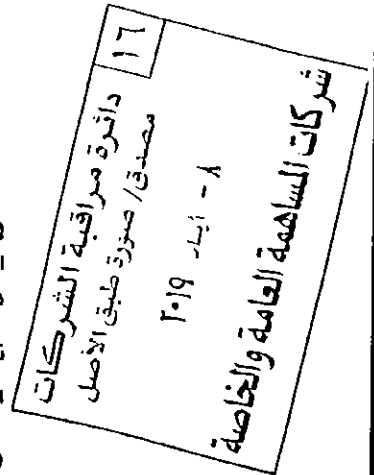 ١٦
دائرة مراقبة الشركات
مصدق/ صورة طبق الأصل
٨ - أيار ٢٠١٩
شركات المساهمة العامة والخاصة